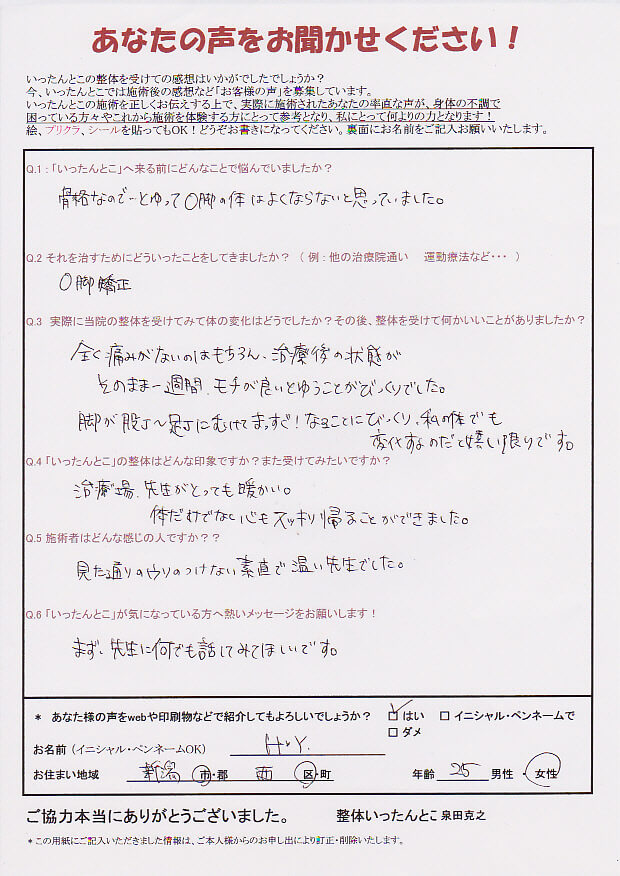 あなたの声をお聞かせください！
いったんとこの整体を受けての感想はいかがでしたでしょうか？
今、いったんとこでは施術後の感想など「お客様の声」を募集しています。
いったんとこの施術を正しくお伝えする上で、実際に施術されたあなたの率直な声が、身体の不調で
困っている方々やこれから施術を体験する方にとって参考となり、私にとって何よりの力となります！
絵、プリクラ、シールを貼ってもOK！どうぞお書きになってください。裏面にお名前をご記入お願いします。
Q.1：「いったんとこ」へ来る前にどんなことで悩んでいましたか？
骨格なので…とゆって〇脚の体はよくならないと思っていました。
Q.2 それを治すためにどういったことをしてきましたか？（例：他の治療院通い　運動療法など・・・）
〇脚矯正
Q.3 実際に当院の整体を受けてみて体の変化はどうでしたか？その後、整体を受けて何かいいことがありましたか？
全く痛みがないのはもちろん、治療後の状態が
そのまま一週間、モチが良いとゆうことがびっくりでした。
脚が股〜足にむけてまっすぐ！なることにびっくり、私の体でも
変化するのだと嬉しい限りです。
Q.4「いったんとこ」の整体はどんな印象ですか？また受けてみたいですか？
治療場、先生がとっても暖かい。
体だけでない心もスッキリ帰ることができました。
Q.5 施術者はどんな感じの人ですか？？
見た通りのウソのつけない素直で温い先生でした。
Q.6「いったんとこ」が気になっている方へ熱いメッセージをお願いします！
まず、先生に何でも話してみてほしいです。
＊ あなた様の声をwebや印刷物などで紹介してもよろしいでしょうか？ ☑はい □イニシャル・ペンネームで
□ダメ
お名前（イニシャル・ペンネームOK） H・Y.
お住まい地域 新潟 市・郡 西 区・町 年齢 25 男性・女性
ご協力本当にありがとうございました。 整体いったんとこ 泉田克之
＊この用紙にご記入いただきました情報は、ご本人様からのお申し出により訂正・削除いたします。